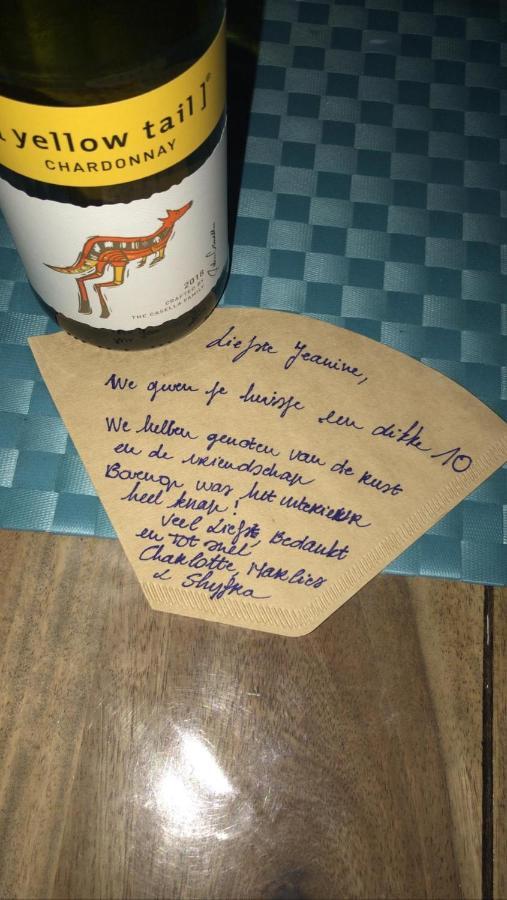 [yellow tail]®
CHARDONNAY
2018
CRAFTED BY
THE CASELLA FAMILY
Liefste Jeanine,
We gwen je huisje een dikke 10
We hebben genoten van de rust
en de vriendschap
Bovenop was het interieur
heel knap!
Veel Liefs, Bedankt
en Tot snel
Charlotte, Marlies
& Shyfra